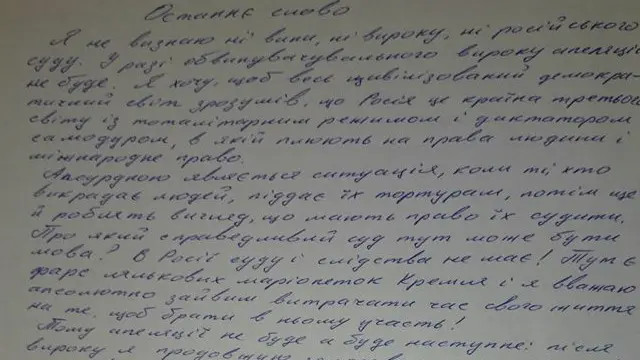 Останнє слово
Я не визнаю ні вини, ні вироку, ні російського
суду. У разі обвинувачувального вироку апеляції
не буде. Я хочу, щоб весь цивілізований демокра-
тичний світ зрозумів, що Росія це країна третього
світу із тоталітарним режимом і диктатором
самодуром, в якій плюють на права людини і
міжнародне право.
Апсурдною являється ситуація, коли ті, хто
викрадає людей, піддає їх тортурам, потім ще
й роблять вигляд, що мають право їх судити.
Про який справедливий суд тут може бути
мова? В Росії суду і слідства немає! Тут є
фарс лялькових маріонеток Кремля і я вважаю
апсолютно зайвим витрачати час свого життя
на те, щоб брати в ньому участь!
Тому апеляції не буде а буде наступне: після
вироку я продовжую